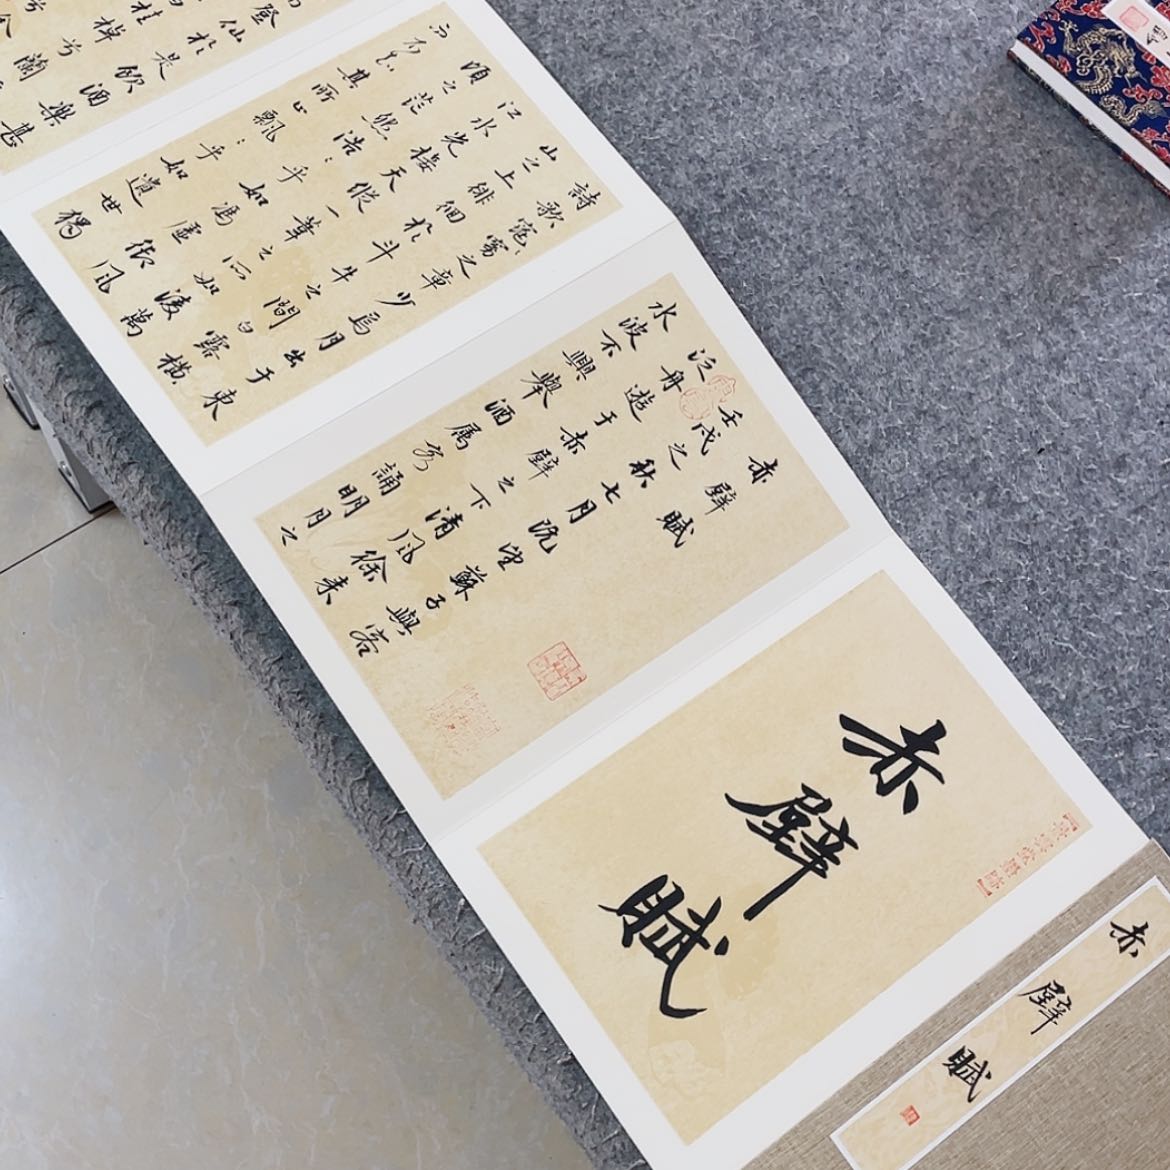 赤壁賦
赤壁賦
赤壁賦
壬戌之秋七月既望蘇子與客
泛舟遊于赤壁之下清風徐来
水波不興舉酒属客誦明月之
詩歌窈窕之章少焉月出于東
山之上徘徊於斗牛之間白露横
江水光接天縱一葦之所如凌萬
頃之茫然浩〻乎如馮虛御風
而不知其所止飄〻乎如遺世獨
登仙於是飲酒樂甚
桂棹兮蘭